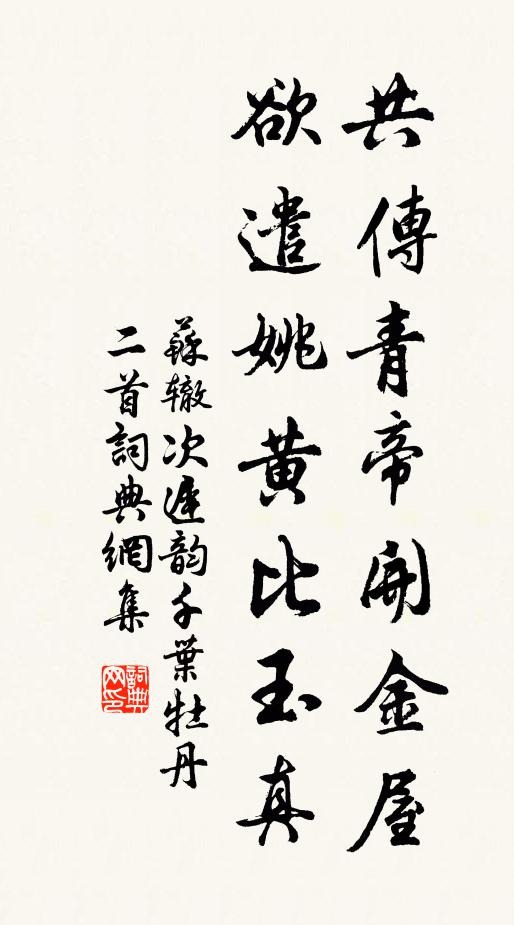 共傳青帝開金屋
欲遣姚黃比玉真
蘇轍次遲韵千葉牡丹
二首詞典網集
詞典網印